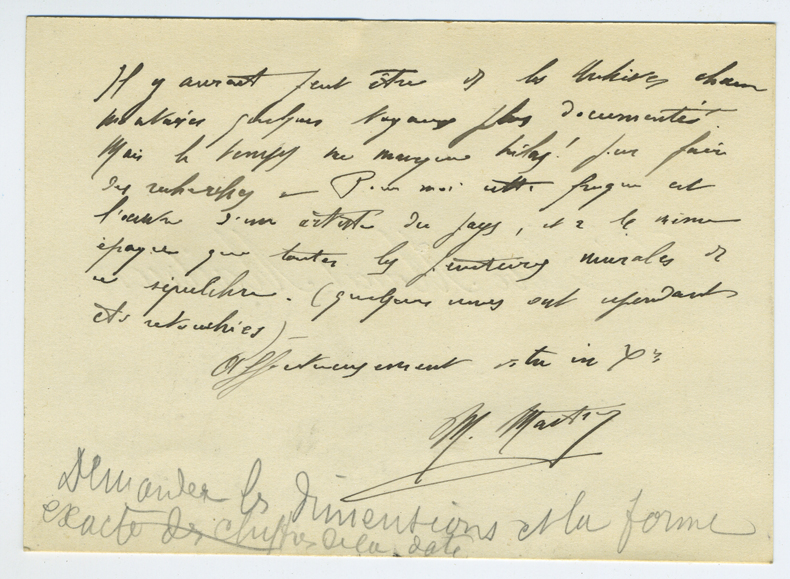 Il y aurait peut être ds les Archives cham
montaises quelques tuyaux plus documentés.
Mais le temps me manque hélas! pour faire
des recherches — Pour moi cette fresque est
l'œuvre d'un artiste du pays, et de la même
époque que toutes les peintures murales de
ce sépulchre. (quelques unes ont cependant
été retouchées)
Affectueusement votre in Xto
M. Martin
Demander les dimensions et la forme
exacte des chiffres de la date